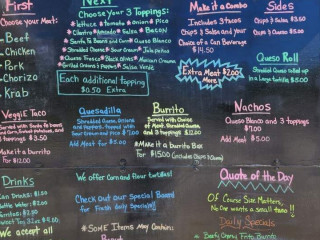 First
Choose your Meat:
- Beef
- Chicken
- Pork
- Chorizo
- Krab
Next
Choose your 3 Toppings:
Lettuce ★ Tomato ★ Onion ★ Pico
★ Cilantro ★ Avocado ★ Salsa ★ Bacon
★ Santa Fe Beans and Corn ★ Queso Blanco
★ Shredded Cheese ★ Sour Cream ★ Jalapeños
★ Queso Fresco ★ Black Olives ★ Mexican Crema
★ Grilled Onions & Peppers ★ Salsa Verde
Each additional topping
$0.50 Extra
Make it a Combo
Includes 3 tacos
Chips & Salsa and your
Choice of a Can Beverage
$14.50
Extra Meat $2.00
More
Sides
Chips & Salsa $3.00
Chips & Queso
Queso Roll
Shredded Queso rolled up
in a Large tortilla $5.00
Veggie Taco
Served with Santa Fe beans
and Corn,
& toppings $3.50
Make it a burrito
For $12.00
Quesadilla
Shredded Queso, Onions
and Peppers, topped with
Sour Cream and Pico $7.00
Add Meat for $5.00
Burrito
Served with Choice
of Meat, Shredded Queso
and 3 toppings $12.00
★ Make it a burrito Box
For $15.00 (includes Chips & Can)
Nachos
Queso Blanco and 3 toppings
for $7.00
Add Meat $5.00
Drinks
Can Drinks: $1.00
Bottle Water: $2.00
We accept all
We offer Corn and flour tortillas!
Check out our Special Board
for Fresh daily Specials!
★ Some Items May Contain:
Quote of the Day
Of Course Size Matters,
No One wants a small taco!!
Daily Specials
★ Beefy Crunchy Fritos Burrito